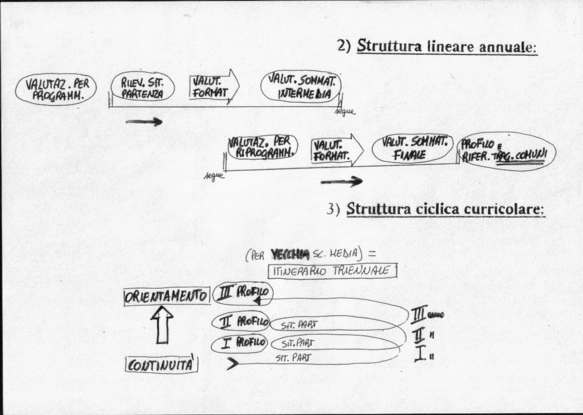 2) Struttura lineare annuale:
VALUTAZ. PER
PROGRAMM.
RILEV. SIT.
PARTENZA
VALUT.
FORMAT
VALUT. SOMMAT.
INTERMEDIA
segue
VALUTAZ. PER
RIPROGRAMM.
VALUT.
FORMAT.
VALUT. SOMMAT.
FINALE
PROFILO E
RIFER. TRAG. COMUNI
segue
3) Struttura ciclica curricolare:
(PER VECCHIA SC. MEDIA) =
ITINERARIO TRIENNALE
ORIENTAMENTO
III PROFILO
II PROFILO
SIT. PART
III ANNO
I PROFILO
SIT. PART
II "
CONTINUITÀ
SIT. PART
I "